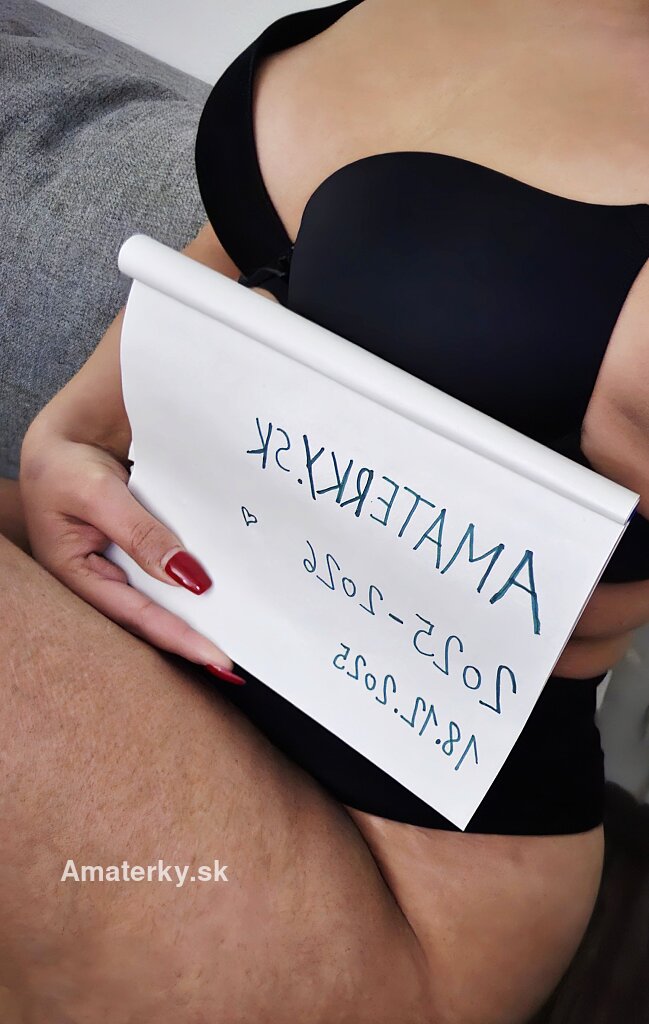 AMATERKY.SK
2025-2026
18.12.2025
Amaterky.sk